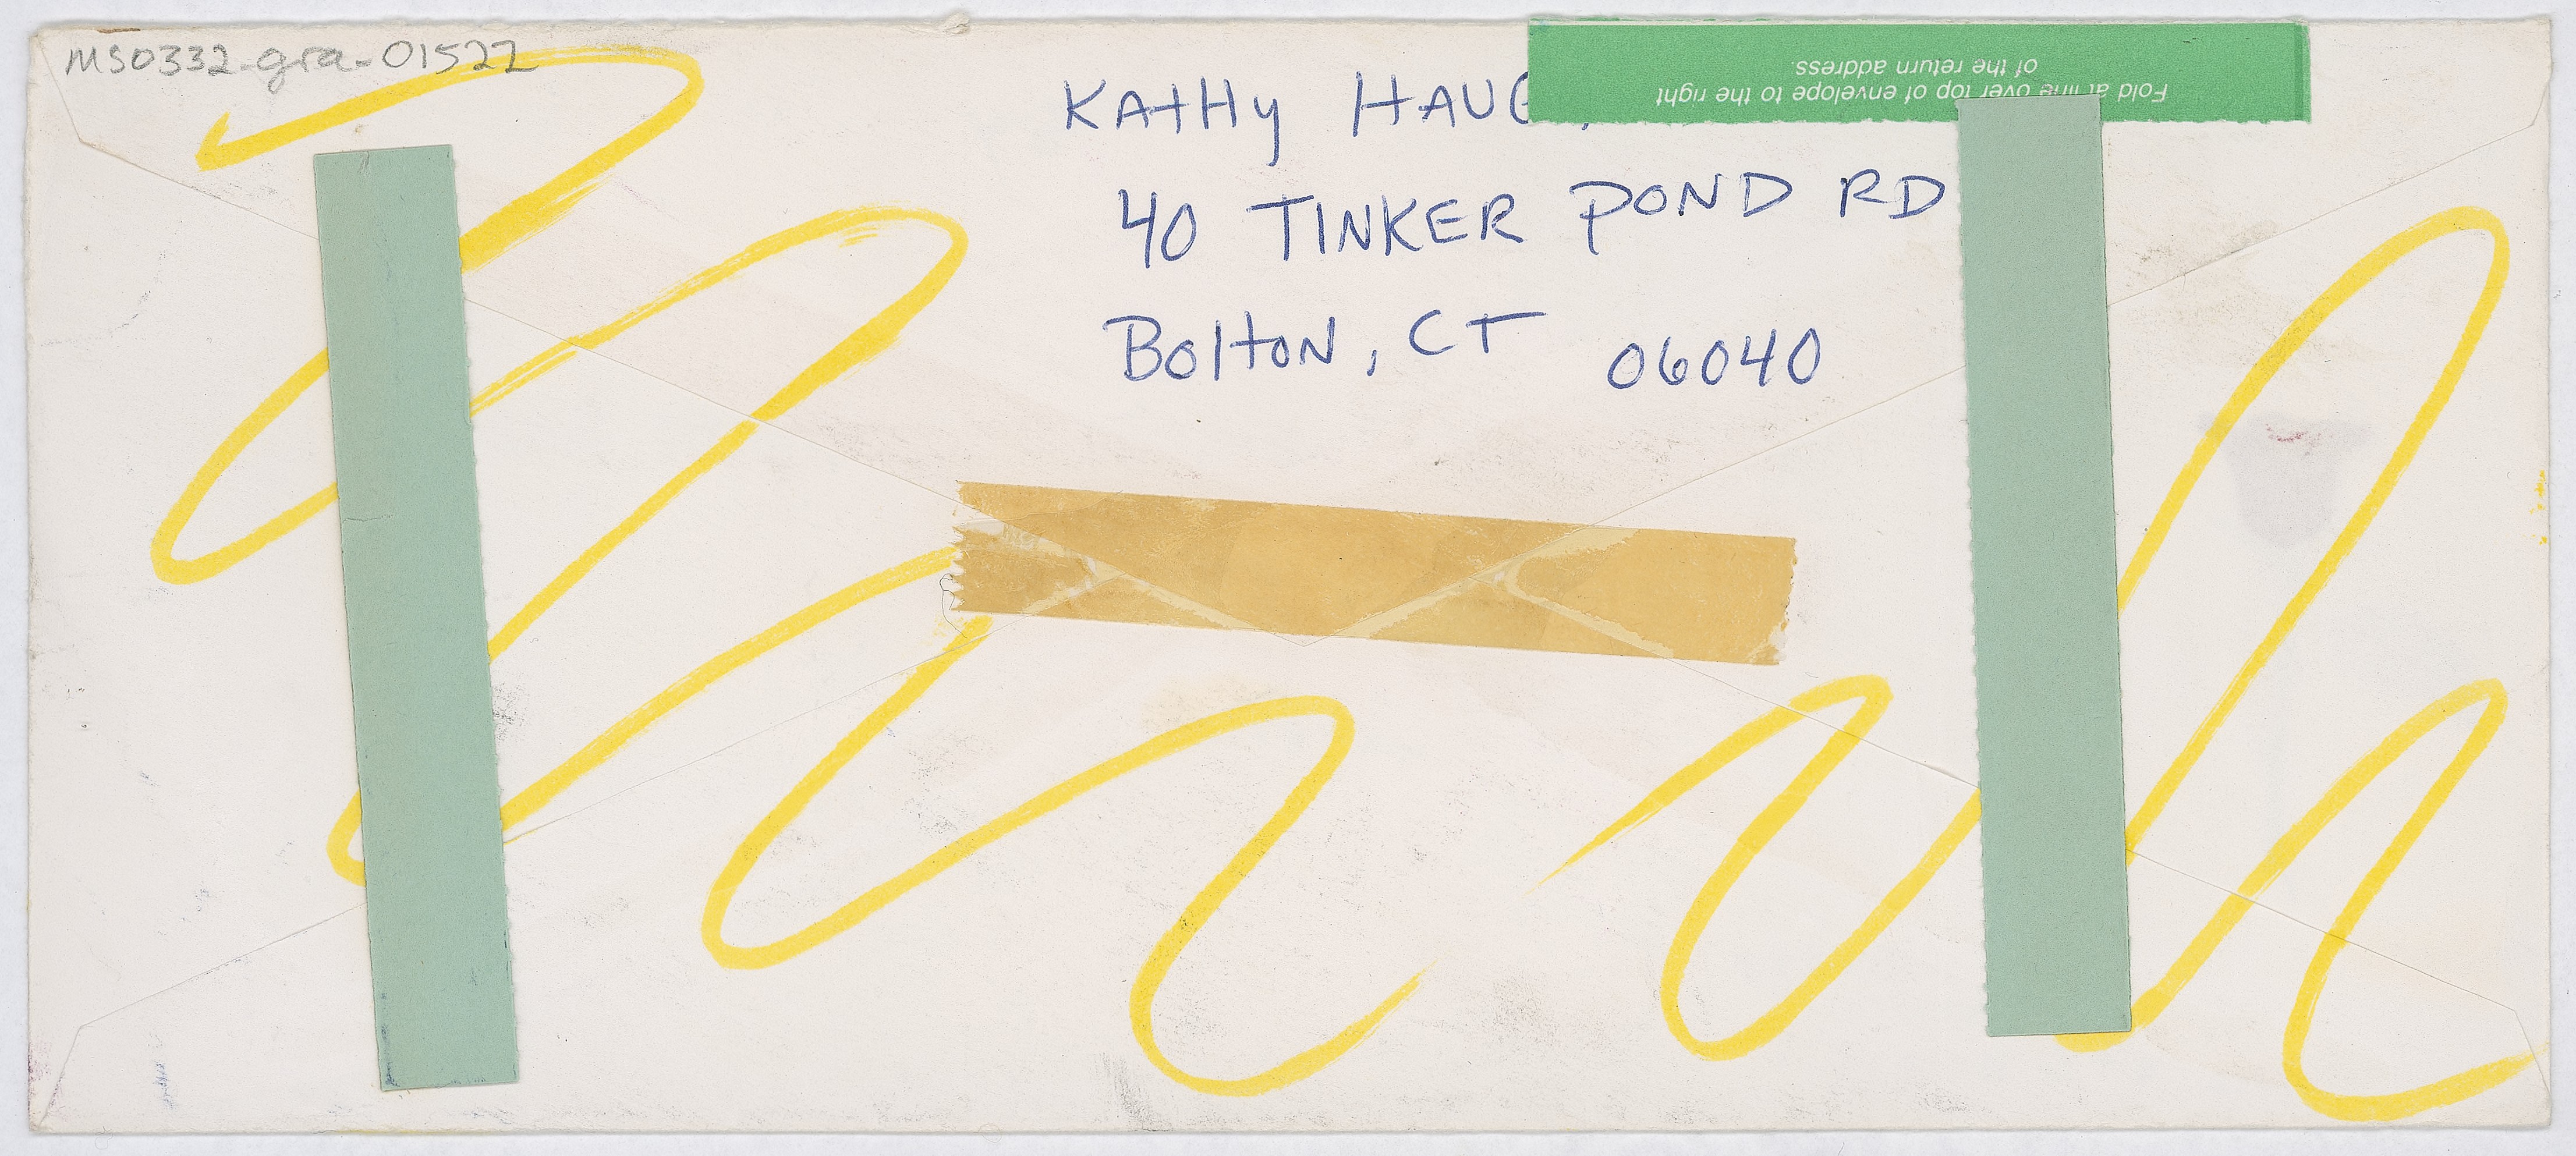 MS0332-gra-01522
Fold at line over top of envelope to the right
of the return address.
KATHY
40 TINKER POND RD
BOLTON, CT 06040